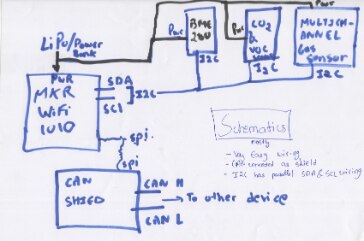 LiPo/Power
Bank
Pwr
BME
280
I2C
Pwr
CO2
&
VOC
I2C
Pwr
MULTICH-
ANNEL
Gas
Sensor
I2C
PWR
MKR
WiFi
1010
SDA
SCL
I2C
spi
spi
CAN
SHIELD
CAN H
CAN L
To other device
Schematics
- Very Easy wiring
- CAN as shield
- I2C has parallel SDA & SCL wiring